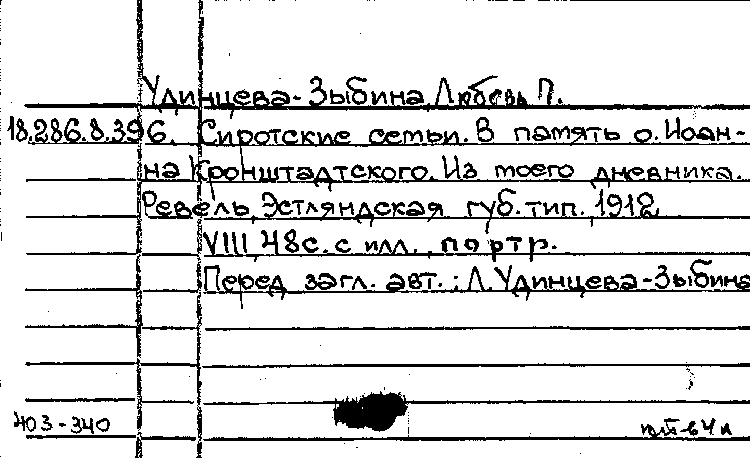 Удинцева-Зыбина, Любовь П.
18.286.8.396. Сиротские семьи. В память о. Иоан-
на Кронштадтского. Из моего дневника.
Ревель, Эстляндская губ. тип., 1912
VIII, 48с. с илл., портр.
Перед загл. авт.: Л. Удинцева-Зыбина
403-340